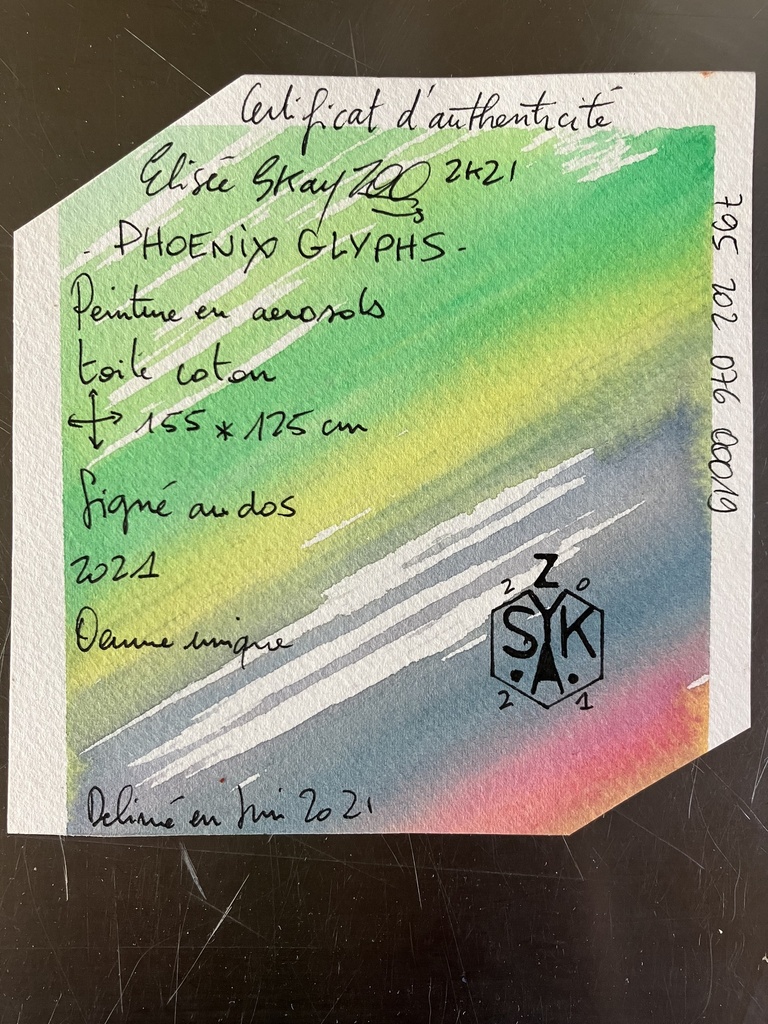 Certificat d'authenticité
Elisée SKay ZOO 2K21
- PHOENIX GLYPHS -
Peinture en aerosols
toile coton
155 * 125 cm
Signé au dos
2021
Oeuvre unique
Z
2 0
SYK
.A.
2 1
Délivré en Juin 2021
795 202 076 00019